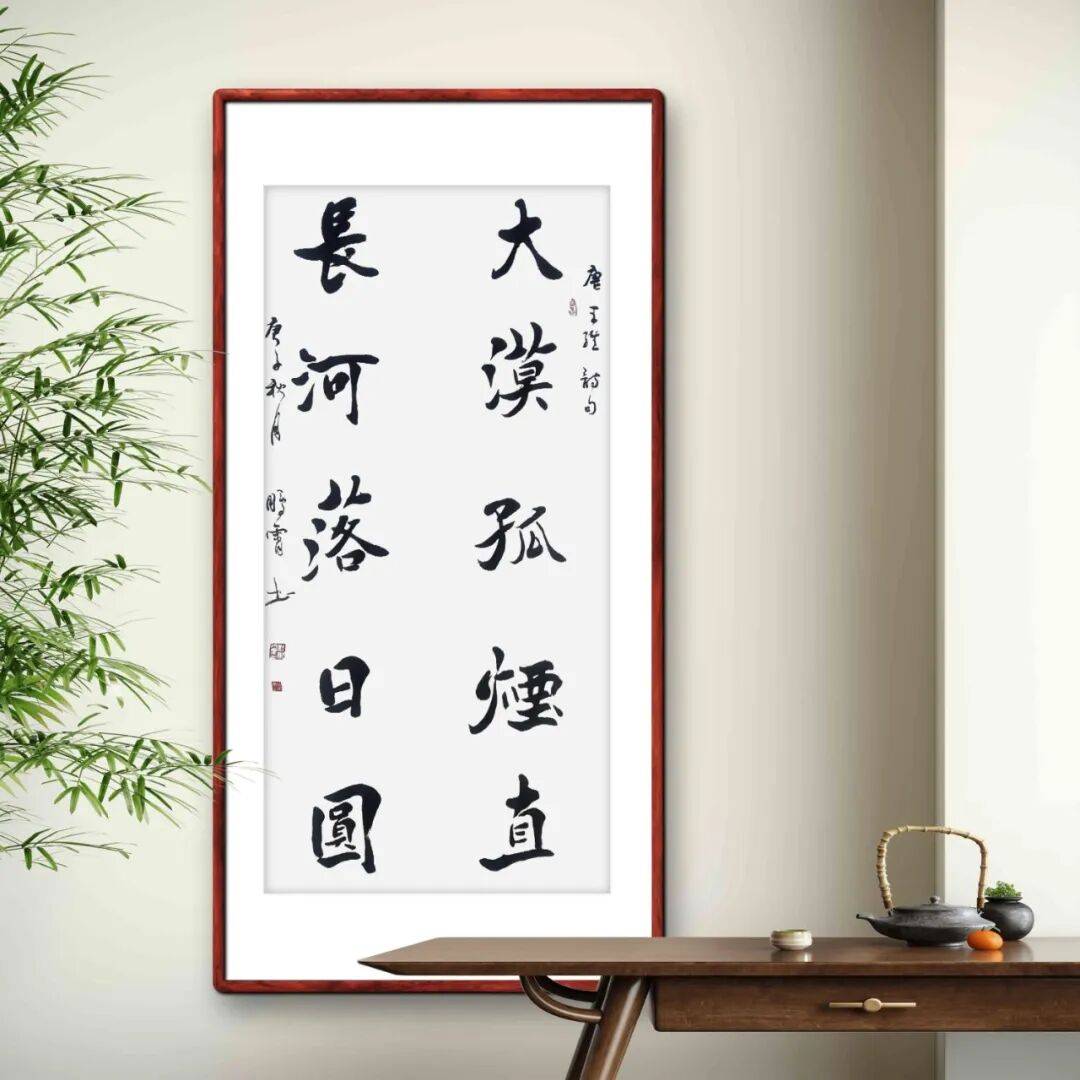 唐王維詩句
大漠孤煙直
長河落日圓
庚子秋月 鵬霄书